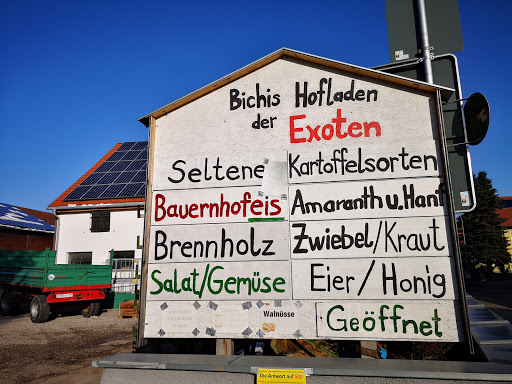 Bichis Hofladen
der Exoten
Seltene Kartoffelsorten
Bauernhofeis Amaranth u. Hanf
Brennholz Zwiebel/Kraut
Salat/Gemüse Eier/Honig
Walnüsse
Geöffnet
Die Antwort auf